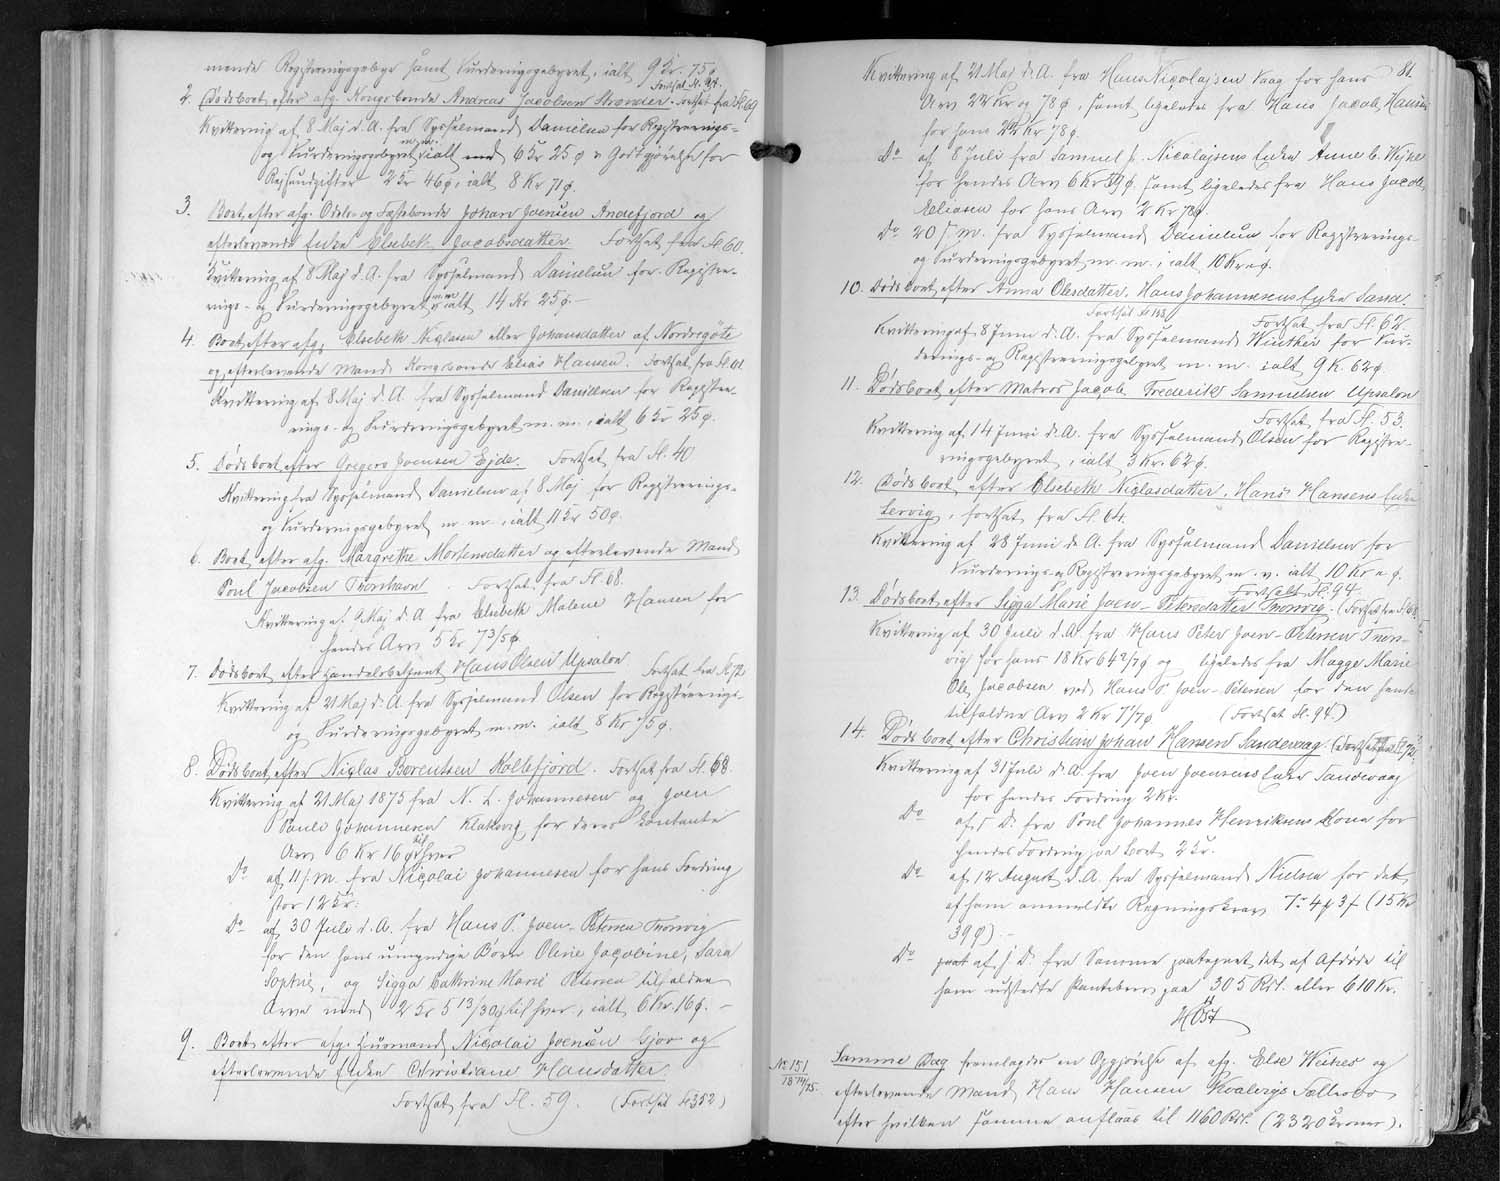 mende Registreringsgebyr samt Vurderingsgebyret, ialt 9 Kr. 75 ø
Fortsat Fl. 94.
2. Dødsboet efter afg. Kongsbonde Andreas Jacobsen Strømnes. Fortsat fra Fl. 69
Kvittering af 8 Maj d. A. fra Sysselmand Danielsen for Registrerings-
og Vurderingsgebyret m. m. ialt med 6 Kr 25 ø + Godtgjørelse for
Rejseudgifter 2 Kr 46 ø, ialt 8 Kr 71 ø.
3. Boet efter afg. Odels- og Fæstebonde Johan Joensen Andefjord og
efterlevende Enke Elsebeth Jacobsdatter. Fortsat fra Fl. 60.
Kvittering af 8 Maj d. A. fra Sysselmand Danielsen for Registre-
rings- og Vurderingsgebyret m m ialt 14 Kr 25 ø. –
4. Boet efter afg. Elsebeth Niclasen eller Johansdatter af Nordregøte
og efterlevende Mand Kongsbonde Elias Hansen. Fortsat fra Fl. 61.
Kvittering af 8 Maj d. A. fra Sysselmand Danielsen for Registre-
rings- og Vurderingsgebyret m. m., ialt 6 Kr 25 ø.
5. Dødsboet efter Gregers Joensen Ejde. Fortsat fra Fl. 40
Kvittering fra Sysselmand Danielsen af 8 Maj for Registrerings-
og Vurderingsgebyret m m., ialt 11 Kr 50 ø.
6. Boet efter afg. Margrethe Mortensdatter og efterlevende Mand
Poul Jacobsen Thorshavn. Fortsat fra Fl. 68.
Kvittering af 9 Maj d. A. fra Elsebeth Malene Hansen for
hendes Arv 5 Kr 73/5 ø.
7. Dødsboet efter Handelsbetjent Hans Olsen Upsalon. Fortsat fra Fl. 72
Kvittering af 21 Maj d. A. fra Sysselmand Olsen for Registrerings-
og Vurderingsgebyret m. m. ialt 8 Kr 75 ø.
8. Dødsboet efter Niclas Berentsen Kollefjord. Fortsat fra Fl. 68.
Kvittering af 21 Maj 1875 fra N. L. Johannesen og Joen
Pauli Johannesen Klaksvig for deres kontante
Arv 6 Kr 16 ø til hver
Do af 11 s. M. fra Nicolai Johannesen for hans Fordring
stor 12 Kr:
Do af 30 Juli d. A. fra Hans P. Joen-Petersen Trønvig
for den hans umyndige Børn Oline Jacobine, Sara
Sophie, og Sigga Cathrine Marie Petersen tilfaldne
Arv med 2 Kr 5 13/30 ø til hver, ialt 6 Kr. 16 ø. –
9. Boet efter afg. Huusmand Nicolai Joensen Gjov og
efterlevende Enke Christiane Hansdatter.
Fortsat fra Fl. 59. (Fortsat Fl 352)
81.
Kvittering af 21 Maj d. A. fra Hans Nicolajsen Vaag for hans
Arv 22 Kr og 78 ø, samt ligeledes fra Hans Jacob Hansen
for hans 22 Kr 78 ø.
Do af 8 Juli fra Samuel J. Nicolajsens Enke Anne C. Wejhe
for hendes Arv 6 Kr 39 ø samt ligeledes fra Hans Jacob
Eliasen for hans Arv 2 Kr 78 ø.
Do 20 s. M. fra Sysselmand Danielsen for Registrerings-
og Vurderingsgebyret m. m., ialt 10 Kr " ø.
10. Dødsboet efter Anna Olesdatter, Hans Johannesens Enke Sand.
Fortsat Fl 133 Fortsat fra Fl. 62.
Kvittering af 8 Juni d. A. fra Sysselmand Winther for Vur-
derings- og Registreringsgebyret m. m. ialt 9 K. 62 ø.
11. Dødsboet efter Matros Jacob Frederik Samuelsen Upsalon
Fortsat fra Fl. 53.
Kvittering af 14 Juni d. A. fra Sysselmand Olsen for Registre-
ringsgebyret, ialt 3 Kr. 62 ø.
12. Dødsboet efter Elsebeth Niclasdatter, Hans Hansens Enke
Lervig, Fortsat fra Fl. 64.
Kvittering af 28 Juni d. A. fra Sysselmand Danielsen for
Vurderings- og Registreringsgebyret m. v. ialt 10 Kr " ø.
Fortsat Fl. 94
13. Dødsboet efter Sigga Marie Joen-Petersdatter Trønvig. (Fortsat fra Fl 68
Kvittering af 30 Juli d. A. fra Hans Peter Joen-Petersen Trøn-
vig for hans 18 Kr 64 2/7 ø og ligeledes fra Magge Marie
Ole Jacobsen ved Hans P. Joen-Petersen for den hende
tilfaldne Arv 2 Kr 7 1/7 ø (Fortsat Fl. 94.)
14. Dødsboet efter Christian Johan Hansen Sandevaag. (Fortsat fra Fl. 72)
Kvittering af 31 Juli d. A. fra Joen Joensens Enke Sandevaag
for hendes Fordring 2 Kr.
Do af s D. fra Poul Johannes Henriksens Kone for
hendes Fordring paa Boet 2 Kr.
Do af 12 August d. A. fra Sysselmand Nielsen for det
af ham anmeldte Regningskrav 7– 4 ꝑ 3 f (15 Kr
39 ø). –
Do af s. D. fra Samme paategnet det af Afdøde til
ham udstedte Pantebrev paa 305 Rd. eller 610 Kr.
HØst
No 151
1874/75.
Samme Dag fremlagdes en Opgjørelse af afg. Else Weihes og
efterlevende Mand Hans Hansen Kvalvigs Sællesbo
efter hvilken samme anslaas til 1160 Rd. (2320 Kroner).